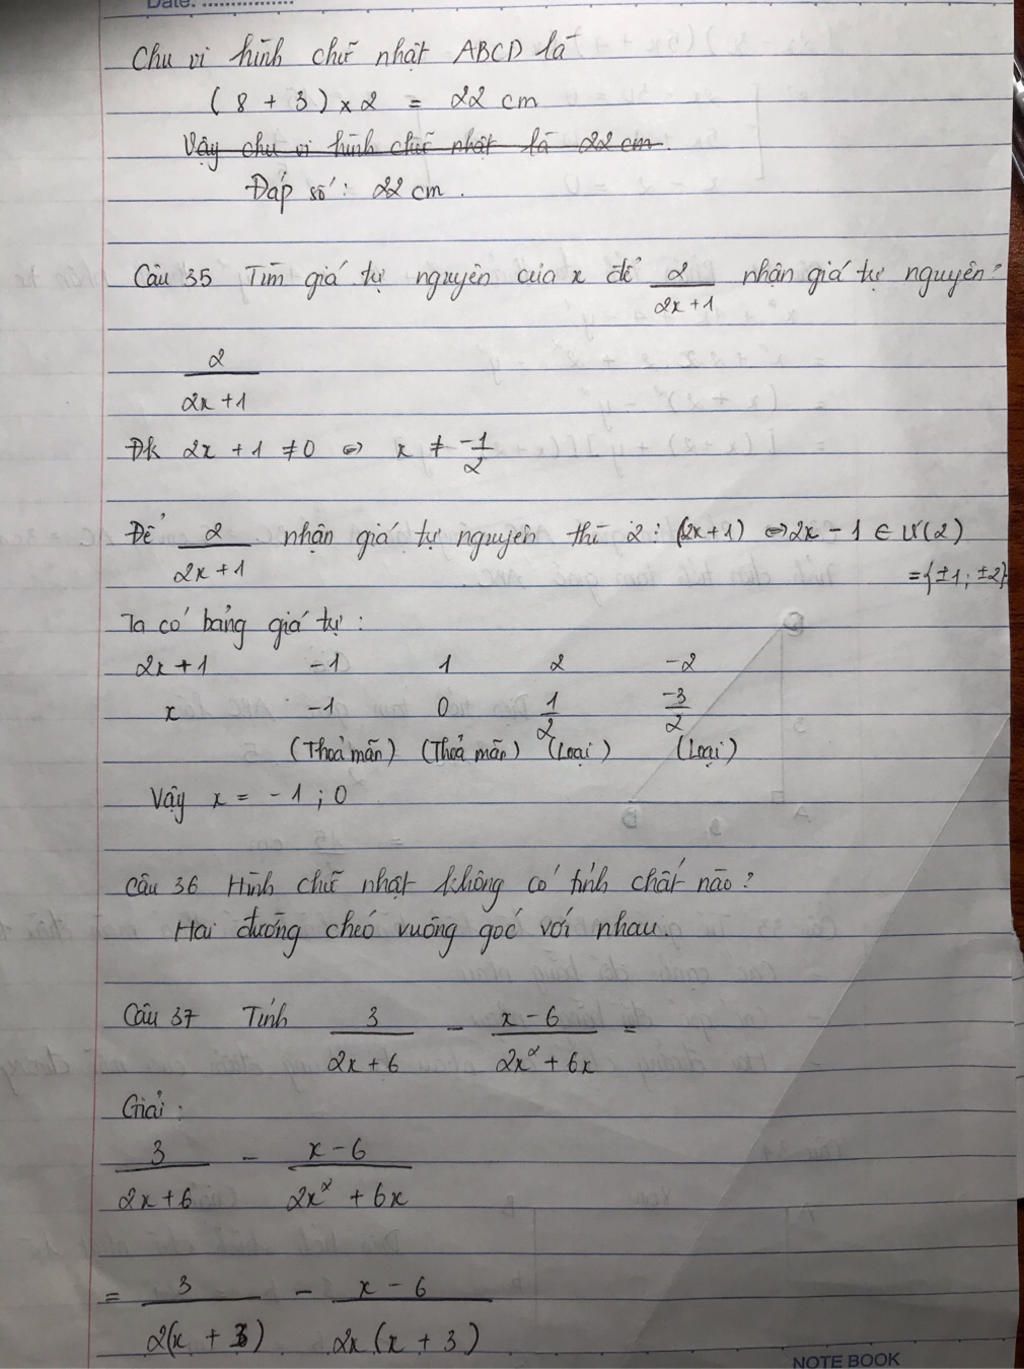 Date:
Chu vi hình chữ nhật ABCD là
(8 + 3) x 2 = 22 cm
Vậy chu vi hình chữ nhật là 22 cm.
Đáp số: 22 cm.
Câu 35 Tìm giá tự nguyên của x để 2/(2x+1) nhận giá tự nguyên?
2/(2x+1)
Đk 2x + 1 ≠ 0 ⇔ x ≠ -1/2
Để 2/(2x+1) nhận giá tự nguyên thì 2 ⋮ (2x+1) ⇔ 2x - 1 ∈ Ư(2)
= {±1; ±2}
Ta có bảng giá tự:
2x+1 -1 1 2 -2
x -1 0 1/2 -3/2
(Thoả mãn) (Thoả mãn) (Loại) (Loại)
Vậy x = -1 ; 0
Câu 36 Hình chữ nhật không có tính chất nào?
Hai đường chéo vuông góc với nhau.
Câu 37 Tính 3/(2x+6) - (x-6)/(2x²+6x) =
Giải:
3/(2x+6) - (x-6)/(2x²+6x)
= 3/(2(x+3)) - (x-6)/(2x(x+3))
NOTE BOOK